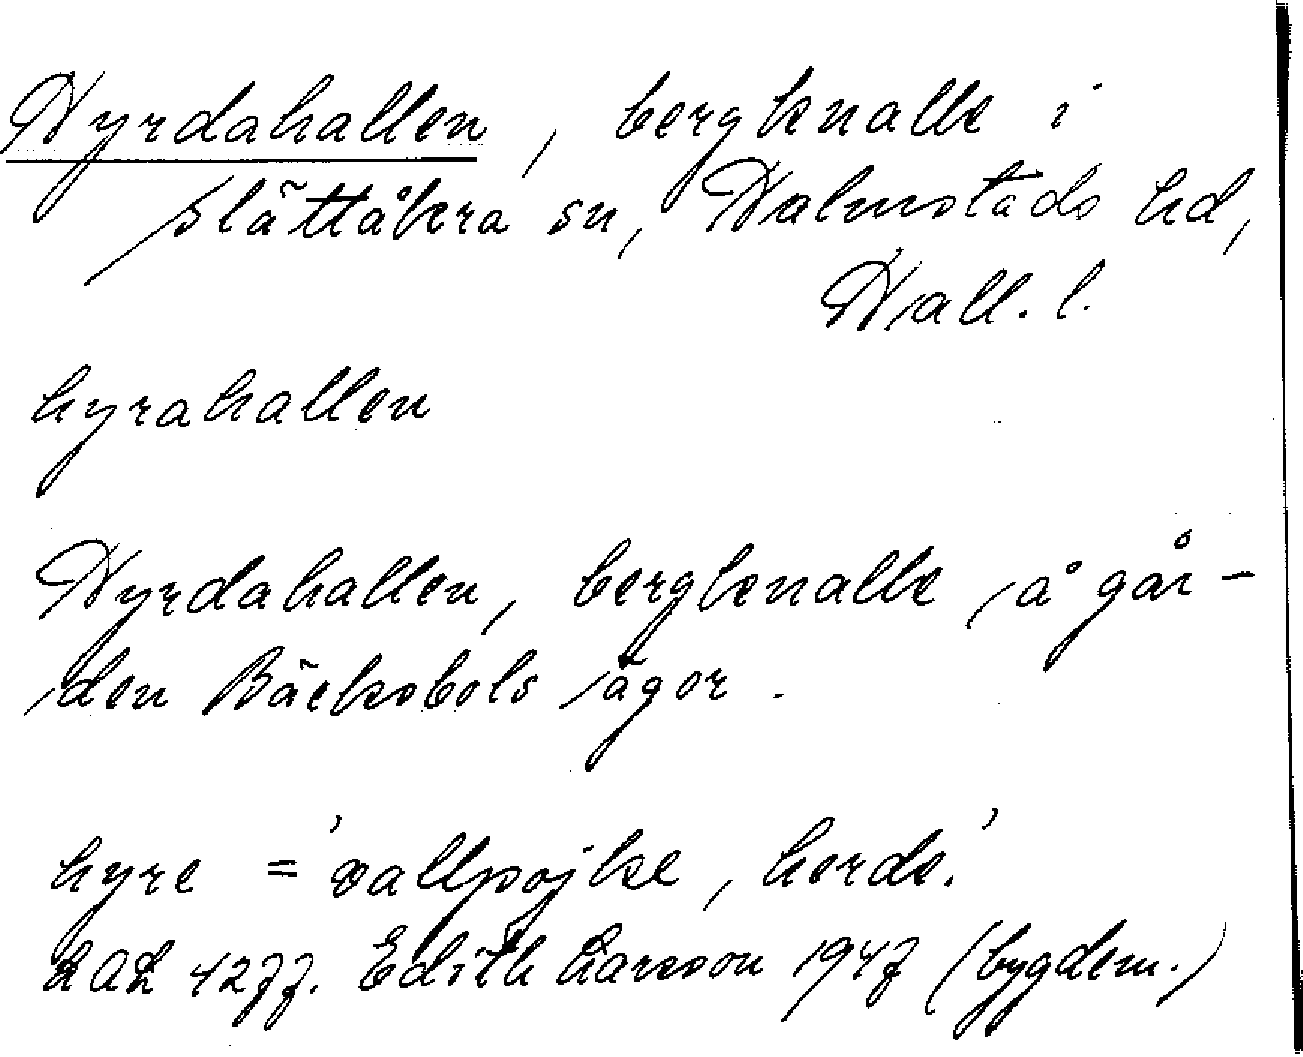 Hyrdahallen, bergknalle i
Slättåkra sn, Halmstads hd,
Hall. l.
hyrahallen
Hyrdahallen, bergknalle å går-
den Bäcksbols ägor.
hyre = 'vallpojke, herde.'
LAL 4277. Edith Larsson 1947 (bygdem.)